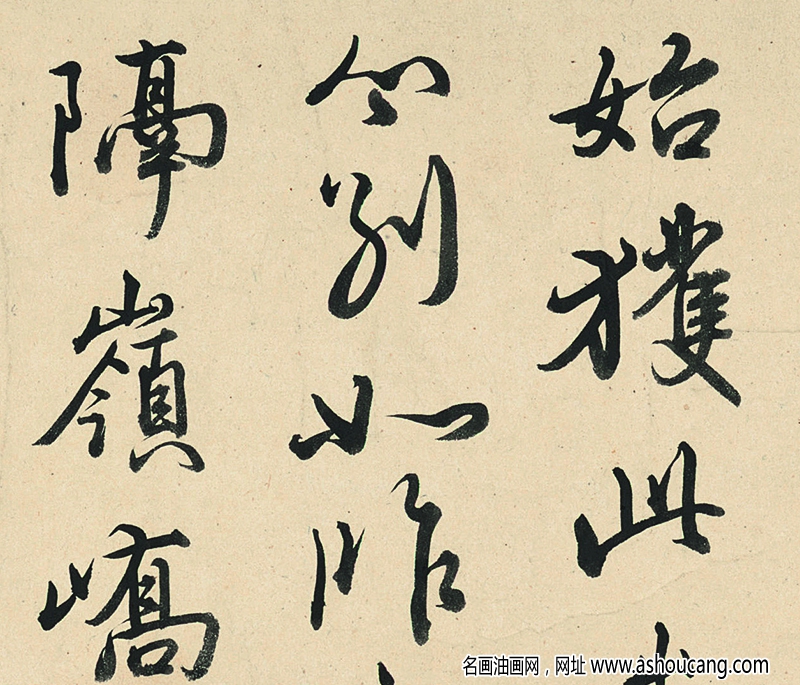 始獲此
分別如昨
隔嶺嶠
名画油画网，网址 www.ashoucang.com